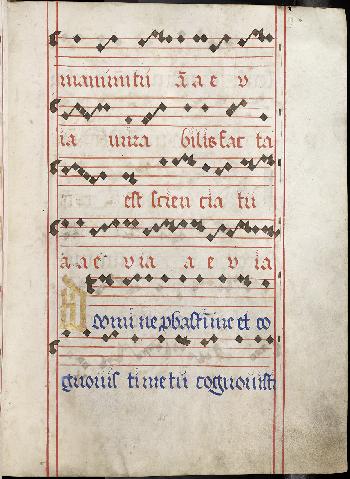 manum tu a a e v
ia mira bilis fac ta
est scien cia tu
a a e via a e v ia
Domi ne pbasti me et co
gnouis ti me tu cognouisti